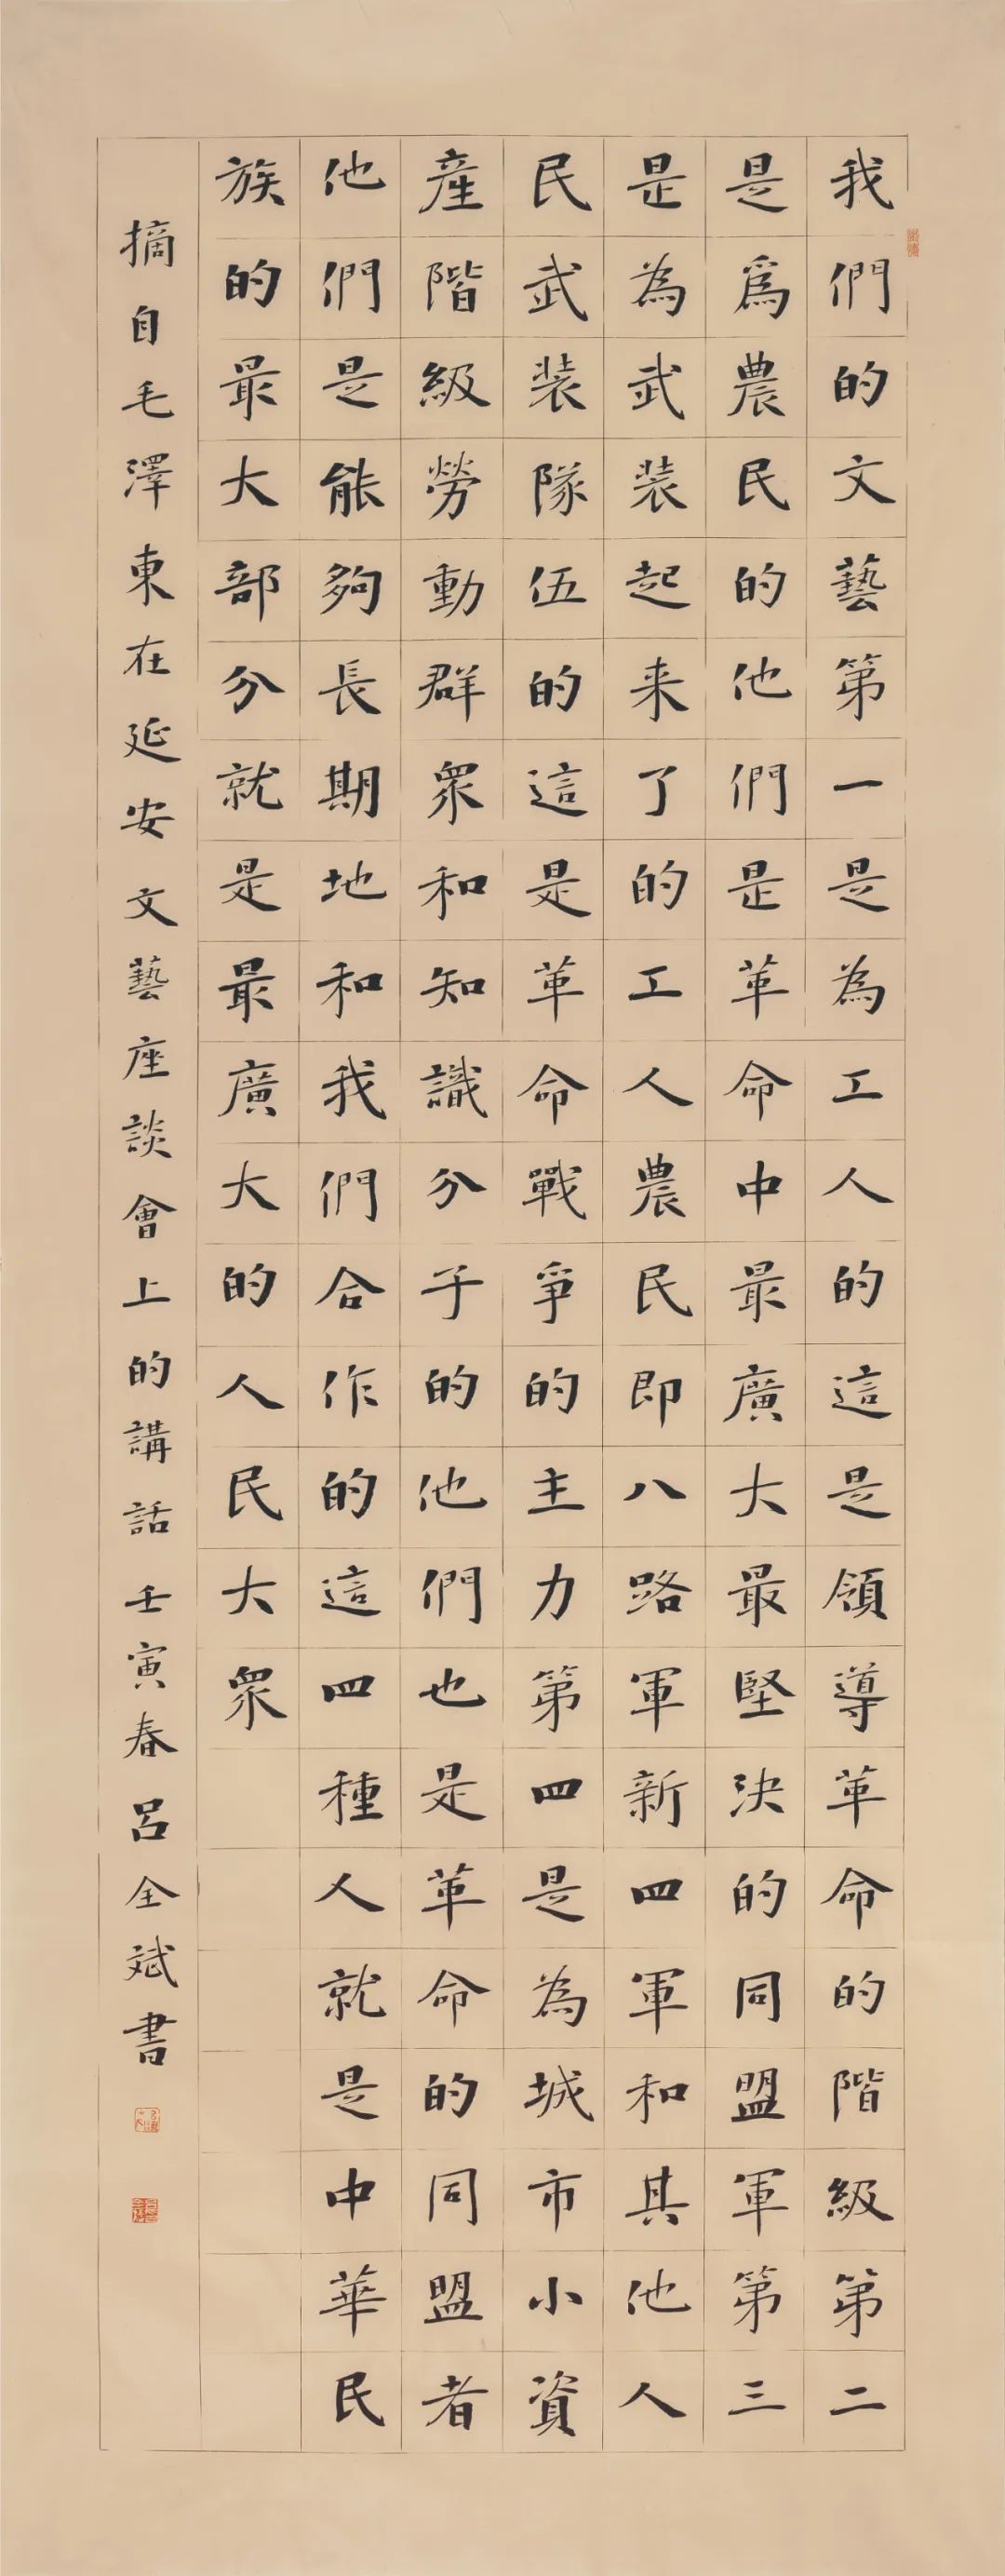 我們的文藝第一是為工人的這是領導革命的階級第二
是爲農民的他們是革命中最廣大最堅決的同盟軍第三
是為武装起来了的工人農民即八路軍新四軍和其他人
民武装隊伍的這是革命戰爭的主力第四是為城市小資
産階級勞動群衆和知識分子的他們也是革命的同盟者
他們是能夠長期地和我們合作的這四種人就是中華民
族的最大部分就是最廣大的人民大衆
摘自毛澤東在延安文藝座談會上的講話壬寅春呂全斌書